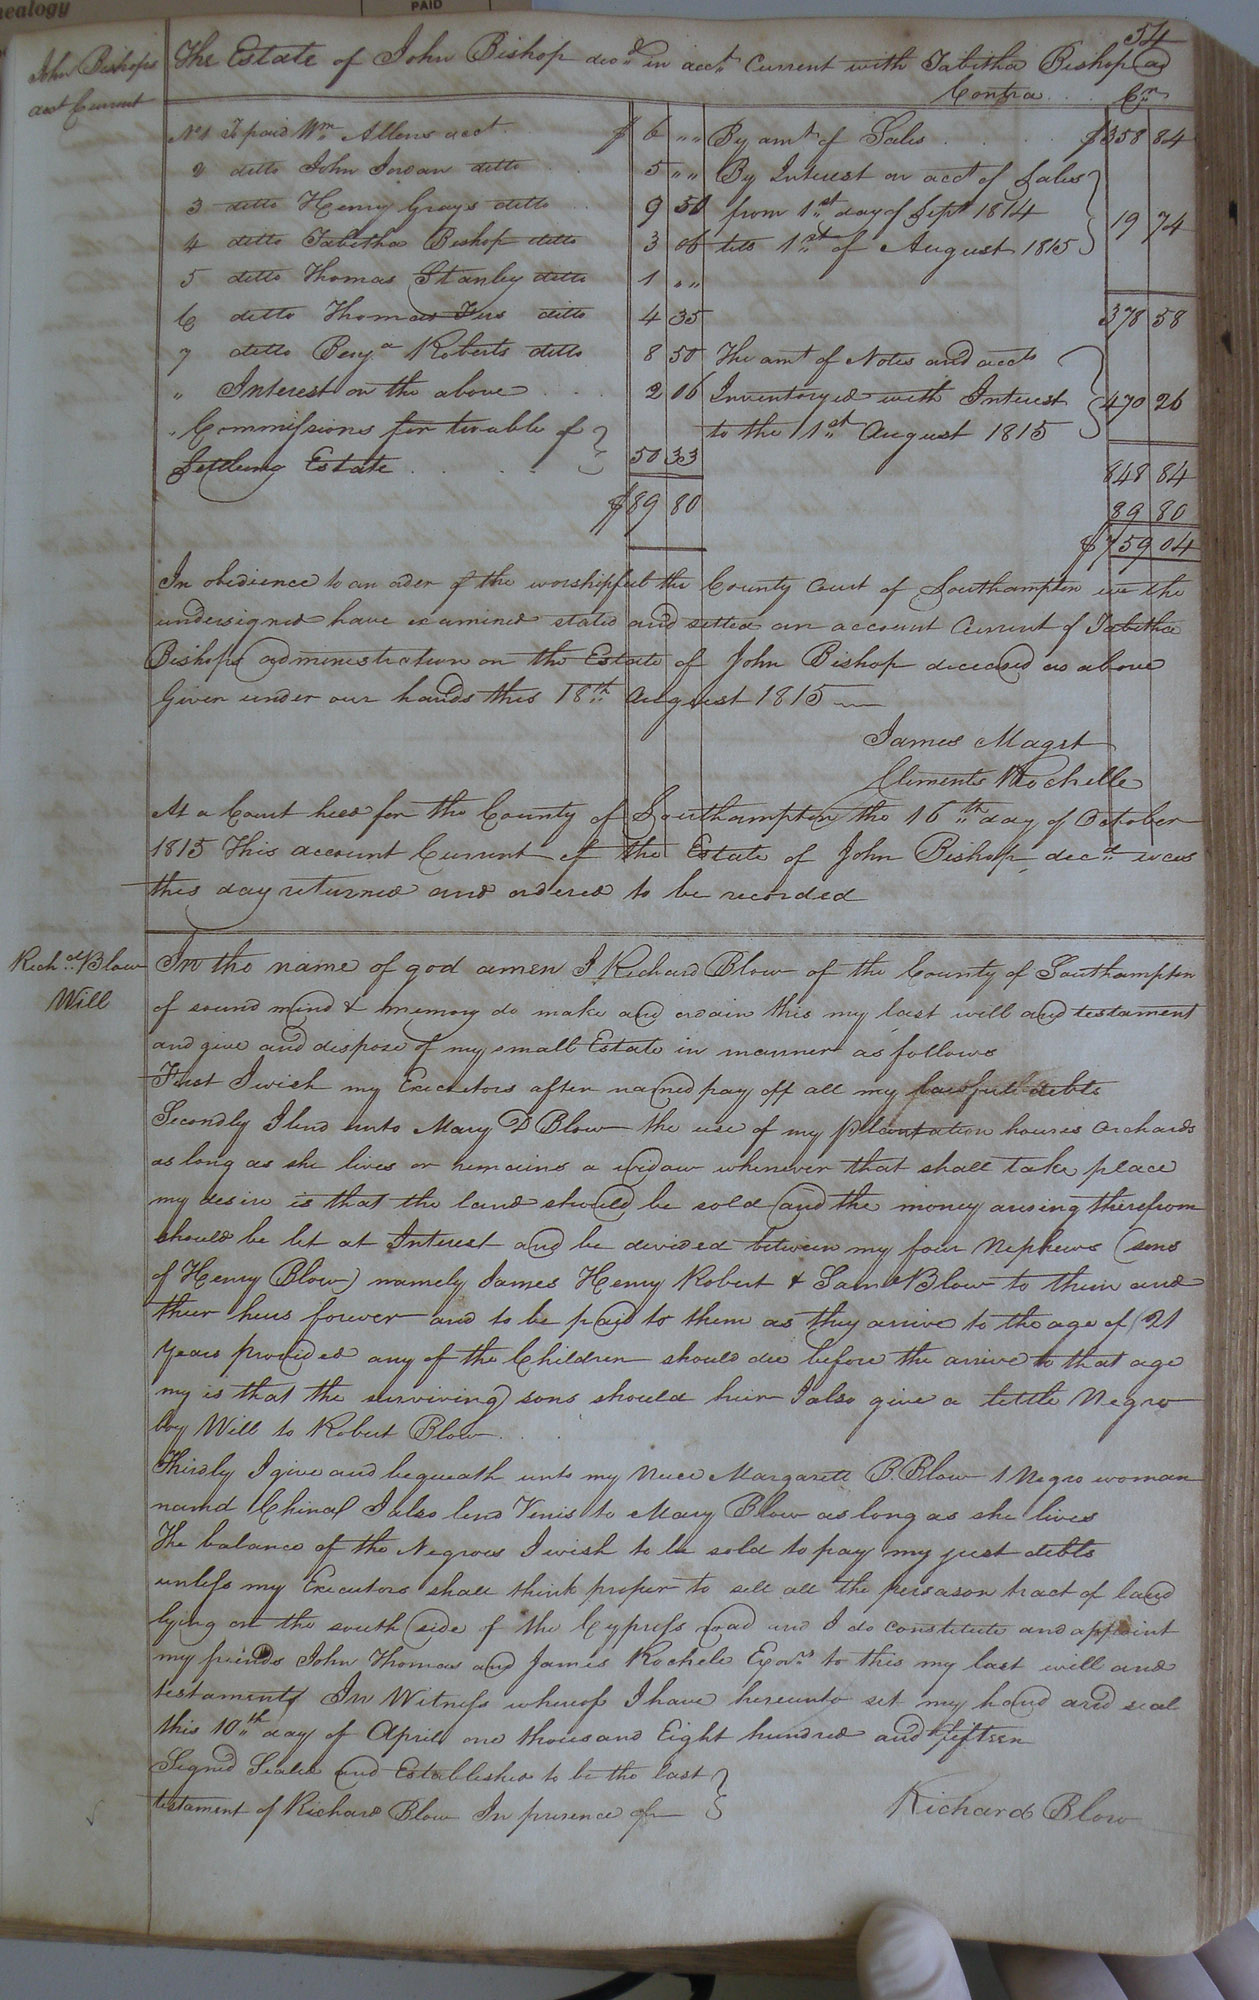 nealogy
PAID
54
John Bishops
acct Current
The Estate of John Bishop decd in acct Current with Tabitha Bishop ad
Contra Cr
No 1 To paid Wm Allens acct $ 6 " " By amt of Sales $358 84
2 ditto John Jordan ditto 5 " " By Interest on acct of Sales
3 ditto Henry Grays ditto 9 50 from 1st day of Sept 1814
4 ditto Tabitha Bishop ditto 3 06 till 1st of August 1815 19 74
5 ditto Thomas Stanley ditto 1 " "
6 ditto Thomas ditto 4 35 378 58
7 ditto Benja Roberts ditto 8 50 The amt of Notes and accts
" Interest on the above 2 06 Inventoryed with Interest 470 26
" Commissions for trouble of to the 1st August 1815
Settling Estate 50 33 848 84
$89 80 89 80
$759 04
In obedience to an oder of the worshipfull the County Court of Southampton we the
undersigned have examined stated and setled an account Current of Tabitha
Bishops administration on the Estate of John Bishop deceased as above
Given under our hands this 18th August 1815
James Maget
Clements Rochelle
At a Court held for the County of Southampton the 16th day of October
1815 This account Current of the Estate of John Bishop decd was
this day returned and ordered to be recorded
Richd Blow
Will
In the name of god amen I Richard Blow of the County of Southampton
of sound mind & memory do make and ordain this my last will and testament
and give and dispose of my small Estate in manner as follows
First I wish my Executors after named pay off all my lawfull debts
Secondly I lend unto Mary D Blow the use of my plantation houses orchards
as long as she lives or remains a widow whenever that shall take place
my desire is that the land should be sold and the money arising therefrom
should be let at Interest and be divided between my four Nephews (sons
of Henry Blow) namely James Henry Robert & Saml Blow to them and
their heirs forever and to be paid to them as they arrive to the age of 21
years provided any of the Children should die before the arrive to that age
my is that the surviving sons should heir I also give a little Negro
boy Will to Robert Blow
Thirdly I give and bequeath unto my Niece Margarett B. Blow 1 Negro woman
namd Chinal I also lend Venis to Mary Blow as long as she lives
The balance of the Negroes I wish to be sold to pay my just debts
unless my Executors shall think proper to sell all the persason tract of land
lying on the south side of the Cypress road and I do constitute and appoint
my friends John Thomas and James Rochele Exors to this my last will and
testament In Witness whereof I have hereunto set my hand and seal
this 10th day of April one thousand Eight hundred and fifteen
Signed Sealed and Established to be the last
testament of Richard Blow In presence of
Richard Blow